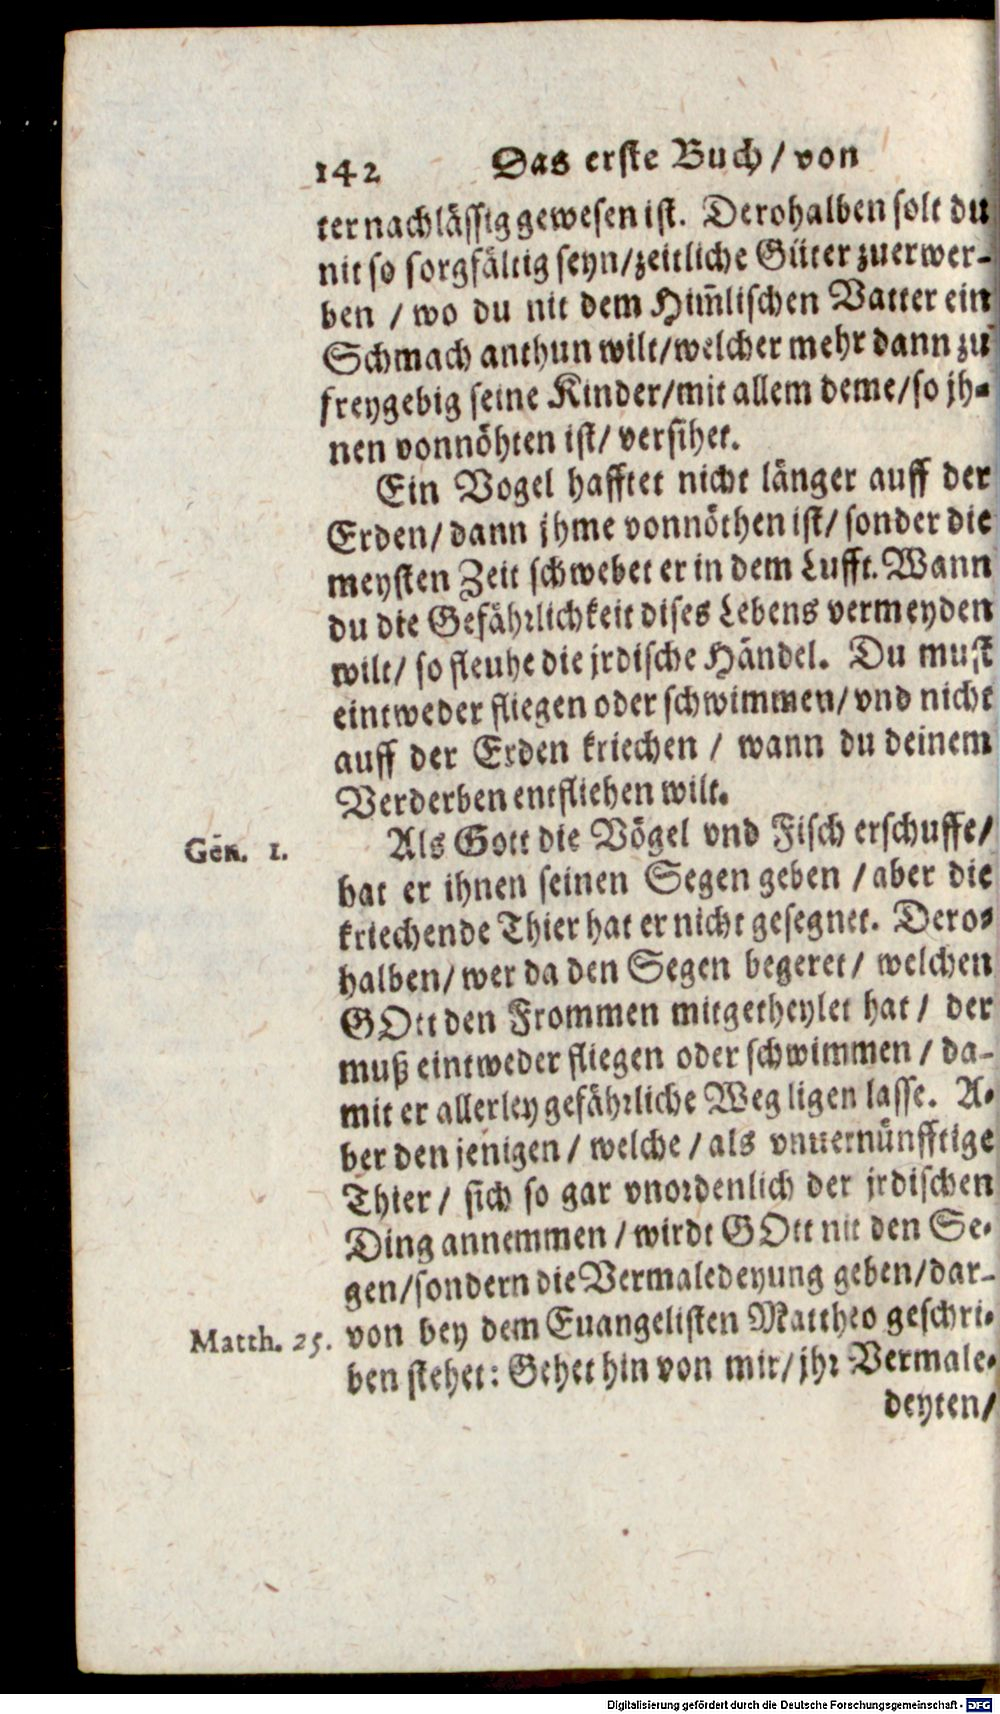 142 Das erste Buch / von
ter nachlässig gewesen ist. Derohalben solt du
nit so sorgfältig seyn/zeitliche Güter zuerwer-
ben / wo du nit dem Him̃lischen Vatter ein
Schmach anthun wilt/welcher mehr dann zu
freygebig seine Kinder/mit allem deme/so jh-
nen vonnöhten ist/ versihet.
Ein Vogel hafftet nicht länger auff der
Erden/ dann jhme vonnöthen ist/ sonder die
meysten Zeit schwebet er in dem Lufft. Wann
du die Gefährlichkeit dises Lebens vermeyden
wilt/ so fleuhe die jrdische Händel. Du must
eintweder fliegen oder schwimmen/ vnd nicht
auff der Erden kriechen / wann du deinem
Verderben entfliehen wilt.
Gen. 1. Als Gott die Vögel vnd Fisch erschuffe/
hat er ihnen seinen Segen geben / aber die
kriechende Thier hat er nicht gesegnet. Dero-
halben/ wer da den Segen begeret/ welchen
GOtt den Frommen mitgetheylet hat / der
muß eintweder fliegen oder schwimmen / da-
mit er allerley gefährliche Weg ligen lasse. A-
ber den jenigen / welche / als vnuernünfftige
Thier / sich so gar vnordenlich der jrdischen
Ding annemmen / wirdt GOtt nit den Se-
gen/sondern die Vermaledeyung geben/dar-
Matth. 25. von bey dem Euangelisten Mattheo geschri-
ben stehet: Gehet hin von mir/ jhr Vermale-
deyten/
Digitalisierung gefördert durch die Deutsche Forschungsgemeinschaft - DFG